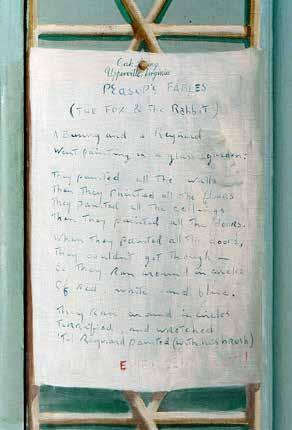 Oak Spring
Upperville, Virginia
FABLES
(THE FOX & The RabbiT)
A Bunny and a Reynard
Went painting in a glass garden.
They painted all the walls
Then They Painted all the floors
They painted all the ceilings
Then They painted all the doors.
When They painted all The doors,
They couldnt get Though —
So They Ran around in circles
Of Red white and blue.
They Ran around in circles
Terrified, and wretched
'Til Reynard painted (with his brush)